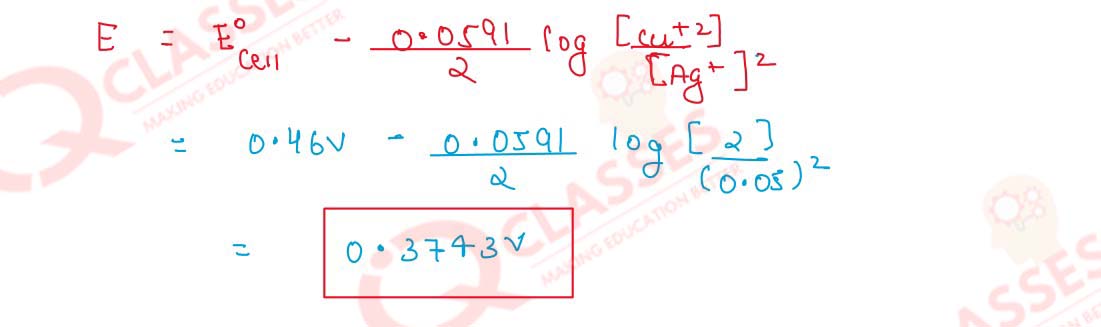 E = E°Cell - 0.0591/2 log [Cu+2]/[Ag+]²
= 0.46V - 0.0591/2 log [2]/(0.05)²
= 0.3743V
Q CLASSES
MAKING EDUCATION BETTER
Q CLASSES
MAKING EDUCATION BETTER
ASSES